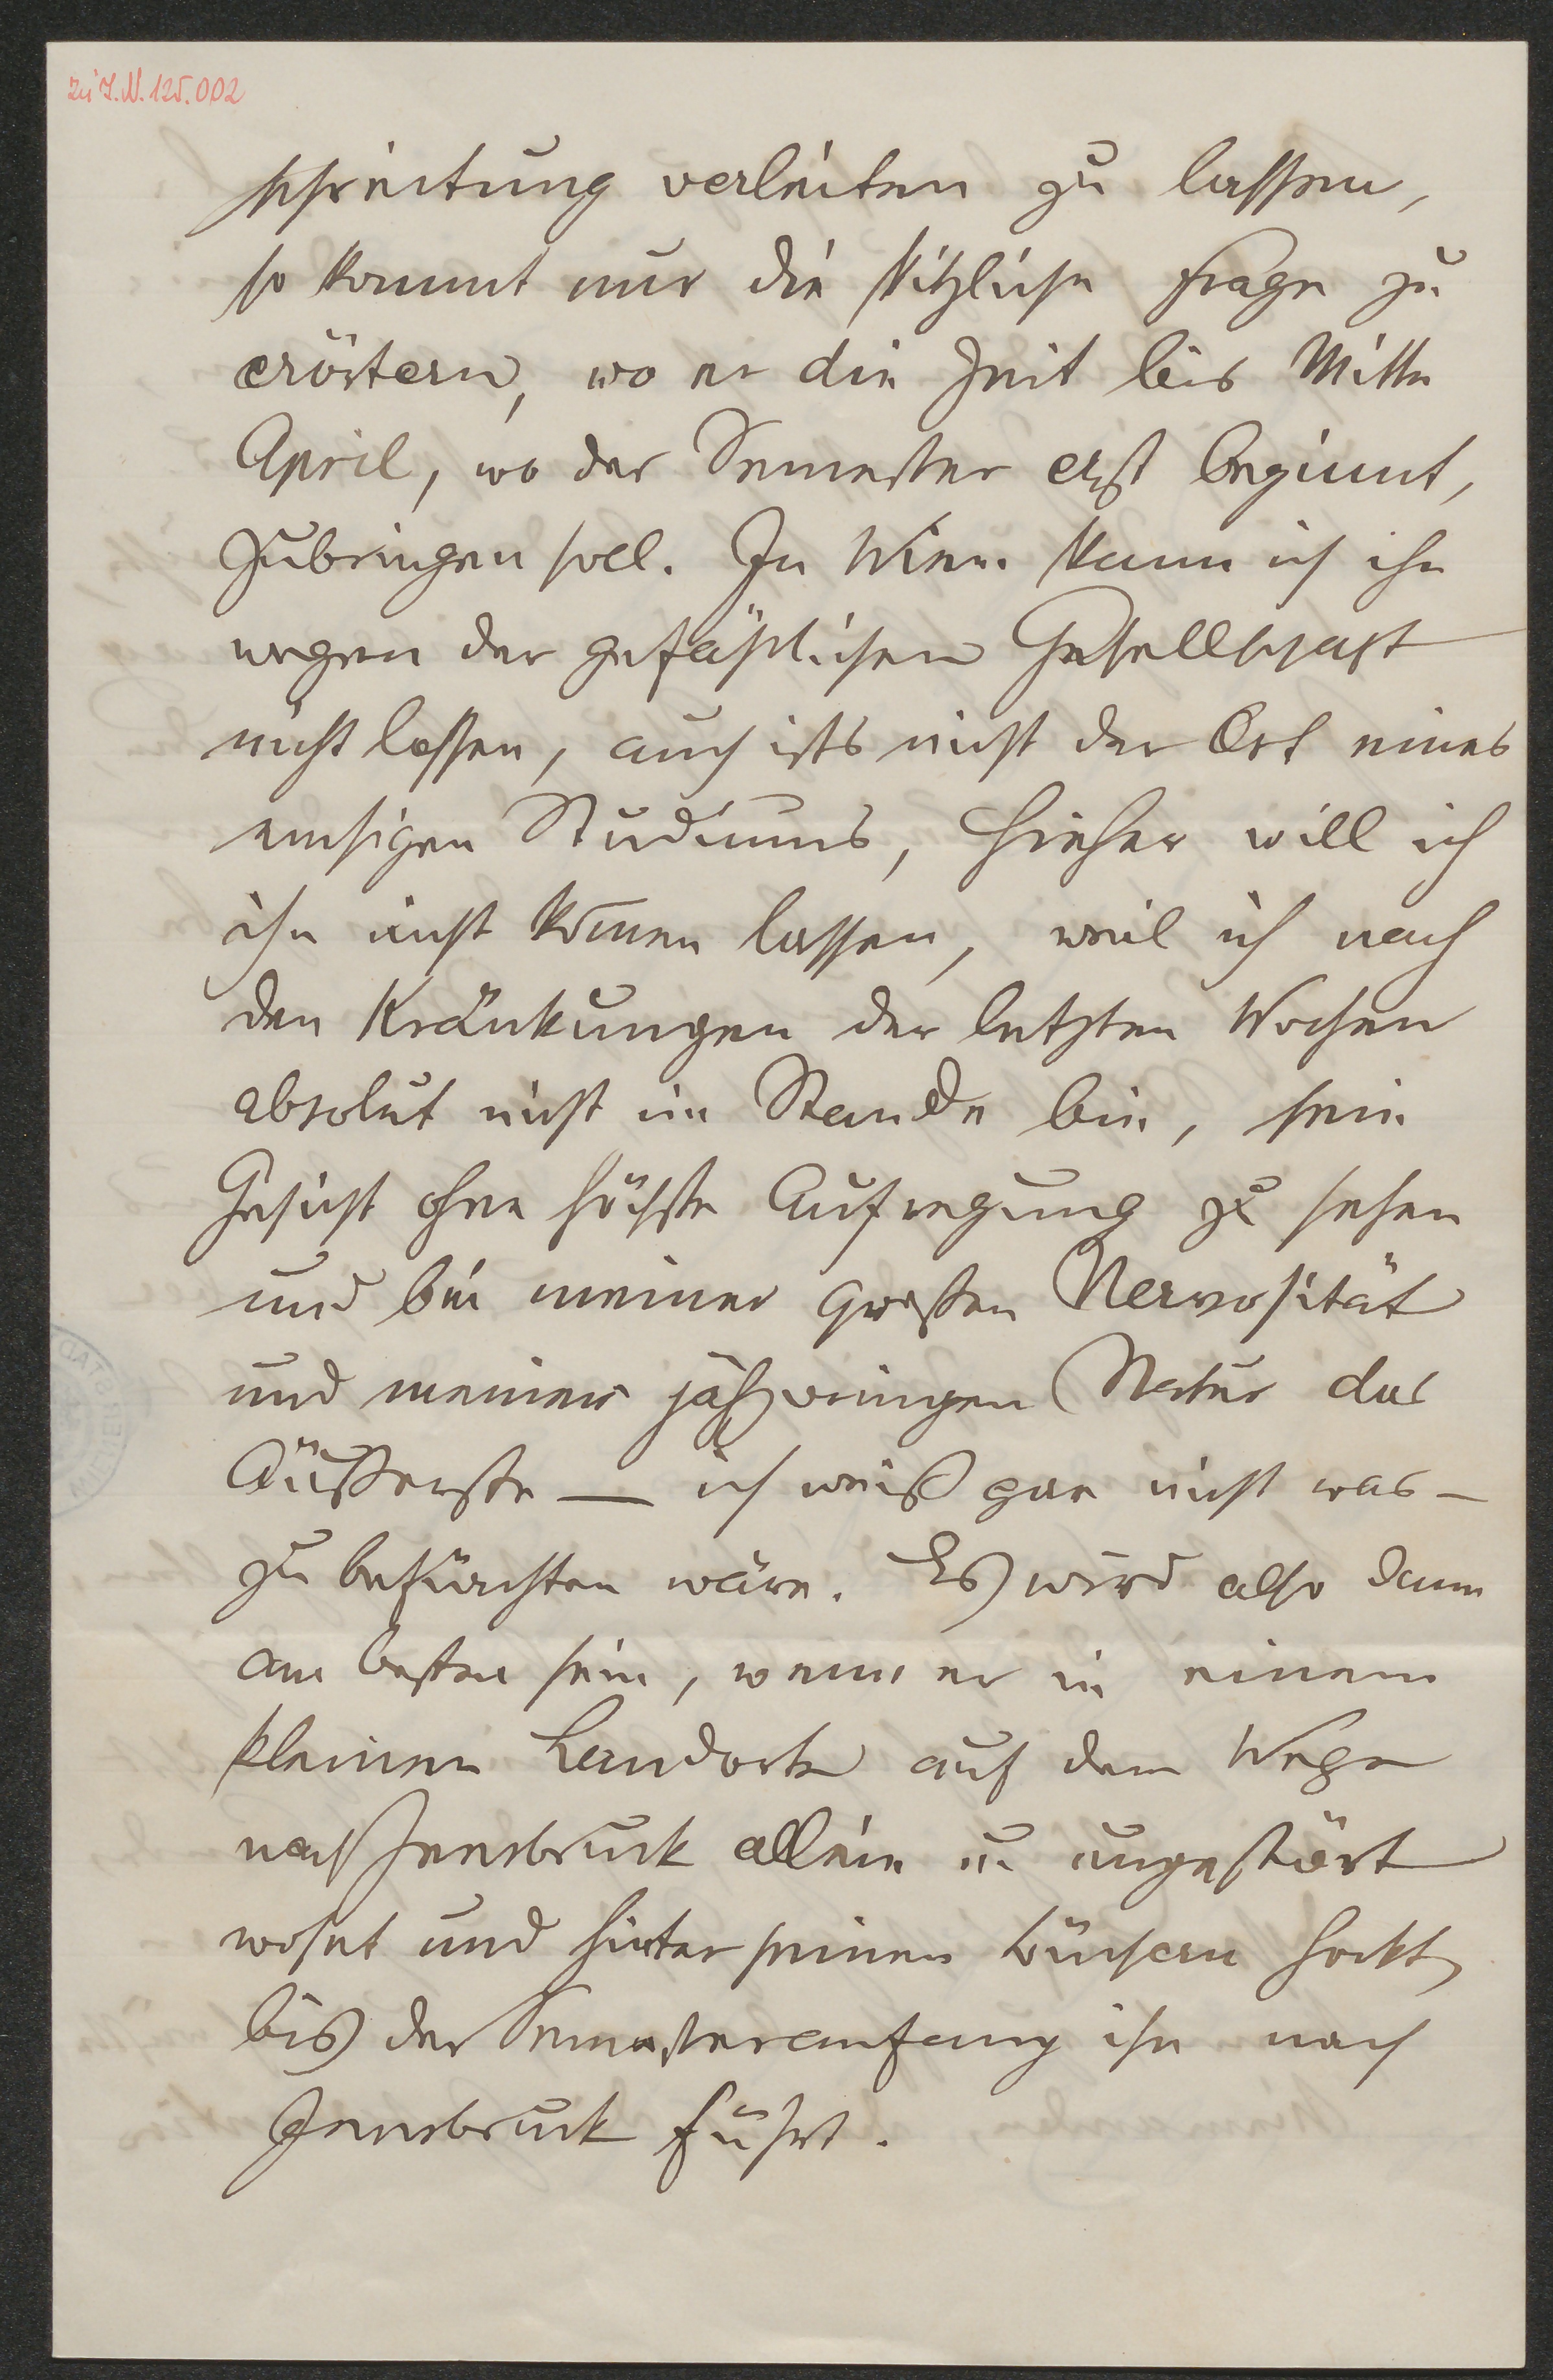 zu I.N. 125.002
schreitung verleiten zu lassen,
so kommt nur die kitzliche Frage zu
erörtern, wo er die Zeit bis Mitte
April, wo das Semester erst beginnt,
zubringen soll. In Wien kann ich ihn
wegen der gefährlichen Gesellschaft
nicht lassen, auch ists nicht der Ort eines
emsigen Studiums, hieher will ich
ihn nicht kom̄en lassen, weil ich nach
den Kränkungen der letzten Wochen
absolut nicht im Stande bin, sein
Gesicht ohne höchste Aufregung zu sehen
und bei meiner großen Nervosität
und meiner jähzornigen Natur das
Äußerste — ich weiß gar nicht was —
zu befürchten wäre. Es wird also dann
am besten sein, wenn er in einem
kleinen Landorte auf dem Wege
nach Innsbruck allein u. ungestört
wohnt und hinter seinen Büchern hockt,
bis der Semesteranfang ihn nach
Innsbruck führt.